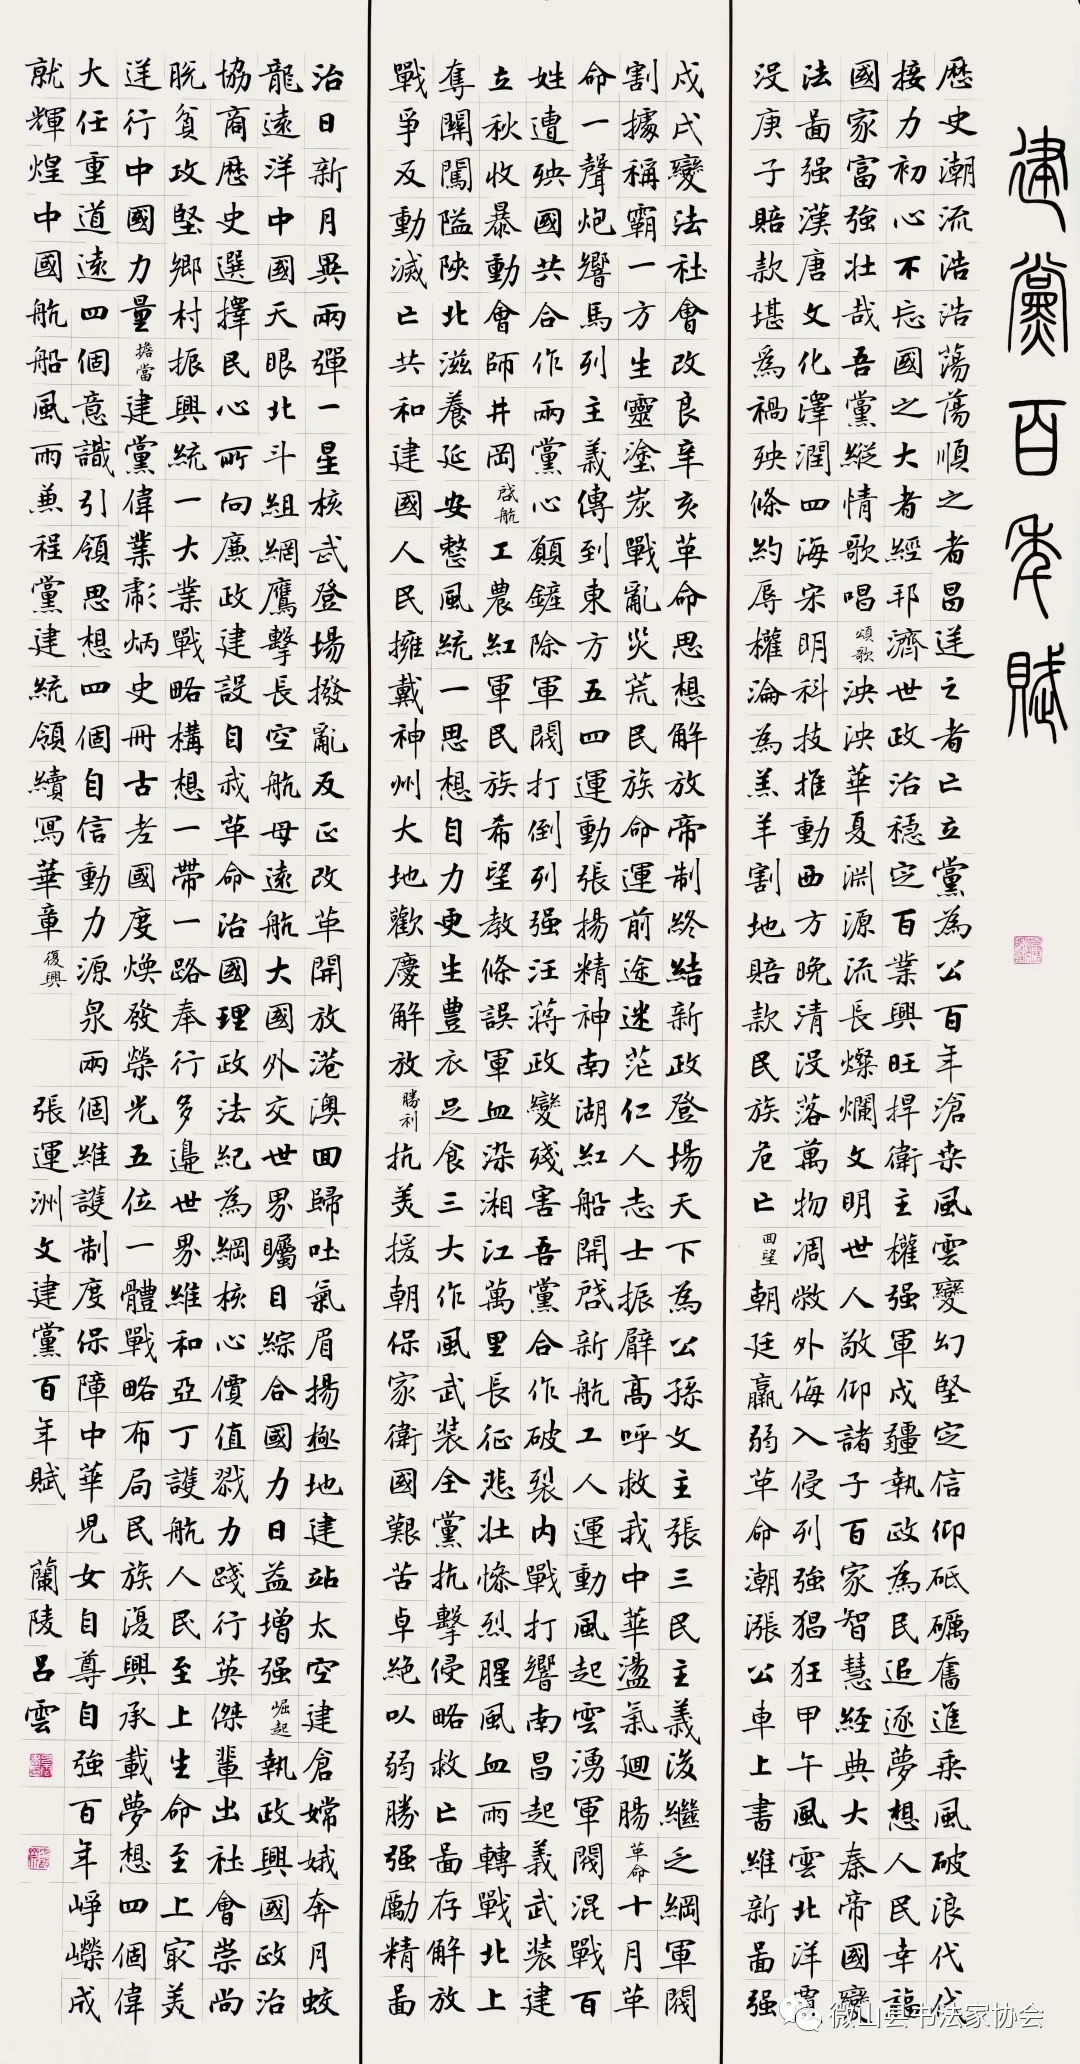 建黨百年賦
歷史潮流浩浩蕩蕩順之者昌逆之者亡立黨為公百年滄桑風雲變幻堅定信仰砥礪奮進乘風破浪代代
接力初心不忘國之大者經邦濟世政治穩定百業興旺捍衛主權強軍戍疆執政為民追逐夢想人民幸福
國家富強壯哉吾黨縱情歌唱頌歌泱泱華夏淵源流長燦爛文明世人敬仰諸子百家智慧經典大秦帝國變
法啚强漢唐文化澤潤四海宋明科技推動西方晚清没落萬物凋敝外侮入侵列強猖狂甲午風雲北洋
没庚子賠款堪爲禍殃條約辱權淪為羔羊割地賠款民族危亡回望朝廷羸弱革命潮漲公車上書維新啚强
戍戌變法社會改良辛亥革命思想解放帝制終結新政登場天下為公孫文主張三民主義後繼乏綱軍閥
割據稱霸一方生靈塗炭戰亂災荒民族命運前途迷茫仁人志士振臂高呼救我中華盪氣迴腸革命十月革
命一聲炮響馬列主義傳到東方五四運動張揚精神南湖紅船開啓新航工人運動風起雲湧軍閥混戰百
姓遭殃國共合作兩黨心願鏟除軍閥打倒列强汪蔣政變殘害吾黨合作破裂内戰打響南昌起義武装建
立秋收暴動會師井岡啓航工農紅軍民族希望教條誤軍血染湘江萬里長征悲壯慘烈腥風血雨轉戰北上
奪關闖隘陝北滋養延安整風統一思想自力更生豐衣足食三大作風武装全黨抗擊侵略救亡啚存解放
戰爭反動滅亡共和建國人民擁戴神州大地歡慶解放勝利抗美援朝保家衛國艱苦卓絶以弱勝强勵精啚
治日新月異兩彈一星核武登場撥亂反正改革開放港澳回歸吐氣眉揚極地建站太空建倉嫦娥奔月蛟
龍遠洋中國天眼北斗組網鷹擊長空航母遠航大國外交世界矚目綜合國力日益增强崛起執政興國政治
協商歷史選擇民心所向廉政建設自我革命治國理政法紀為綱核心價值戮力踐行英傑輩出社會崇尚
脱貧攻堅鄉村振興統一大業戰略構想一帶一路奉行多邊世界維和亞丁護航人民至上生命至上最美
逆行中國力量擔當建黨偉業彪炳史冊古老國度煥發榮光五位一體戰略布局民族復興承載夢想四個偉
大任重道遠四個意識引領思想四個自信動力源泉兩個維護制度保障中華兒女自尊自強百年崢嶸成
就輝煌中國航船風雨兼程黨建統領續寫華章復興 張運洲文建黨百年賦 蘭陵呂雲
微山县书法家协会